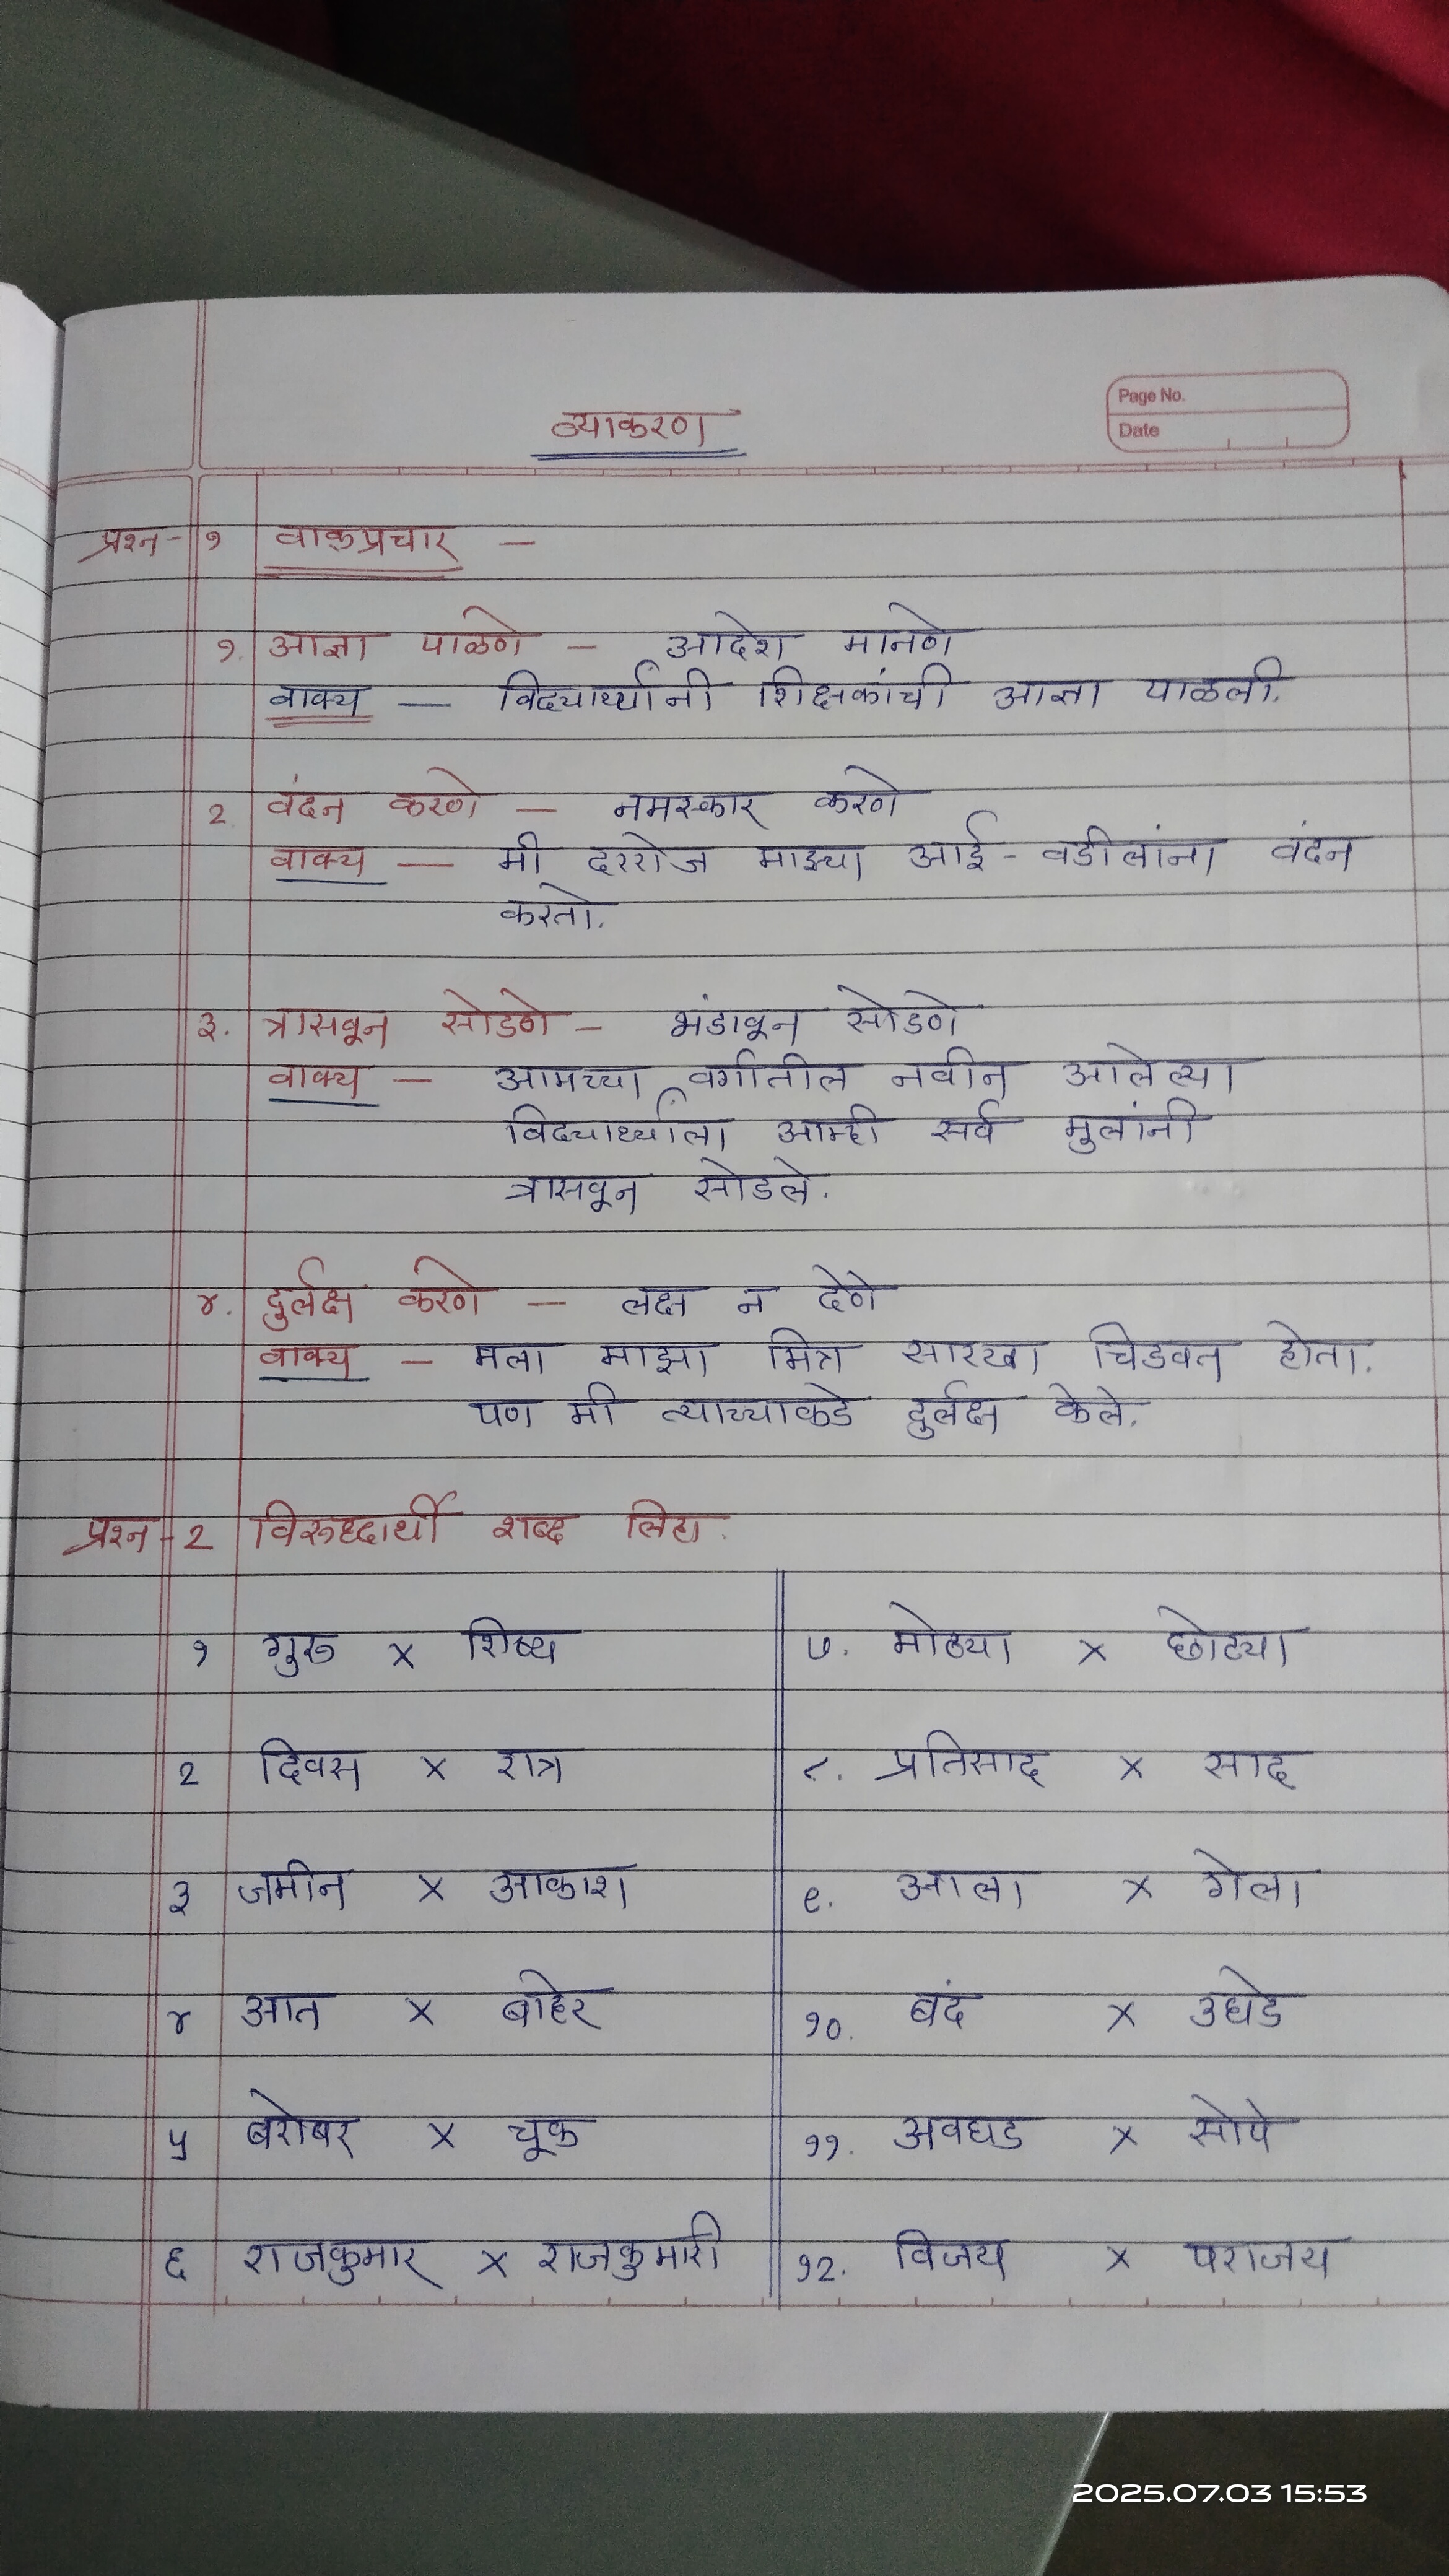 व्याकरण
Page No.
Date
प्रश्न - १ वाक्प्रचार —
१. आज्ञा पाळणे — आदेश मानणे
वाक्य — विद्यार्थ्यांनी शिक्षकांची आज्ञा पाळली.
२. वंदन करणे — नमस्कार करणे
वाक्य — मी दररोज माझ्या आई - वडीलांना वंदन
करतो.
३. त्रासवून सोडणे — भंडावून सोडणे
वाक्य — आमच्या वर्गातील नवीन आलेल्या
विद्यार्थ्याला आम्ही सर्व मुलांनी
त्रासवून सोडले.
४. दुर्लक्ष करणे — लक्ष न देणे
वाक्य — मला माझा मित्र सारखा चिडवत होता.
पण मी त्याच्याकडे दुर्लक्ष केले.
प्रश्न - २ विरुद्धार्थी शब्द लिहा.
१ गुरु x शिष्य
२ दिवस x रात्र
३ जमीन x आकाश
४ आत x बाहेर
५ बरोबर x चूक
६ राजकुमार x राजकुमारी
७. मोठ्या x छोट्या
८. प्रतिसाद x साद
९. आला x गेला
१०. बंद x उघडे
११. अवघड x सोपे
१२. विजय x पराजय
2025.07.03 15:53